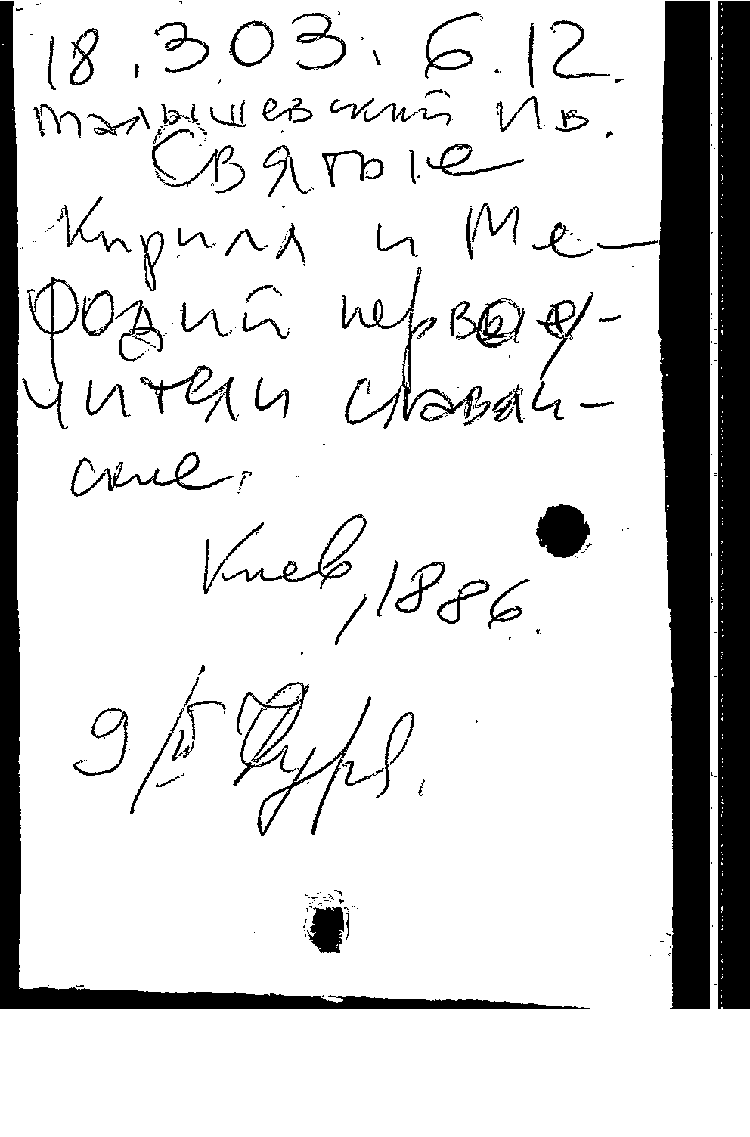 18.303.6.12.
Малышевский Ив.
Святые
Кирилл и Ме-
фодий первоу-
чители славян-
ские.
Киев, 1886.